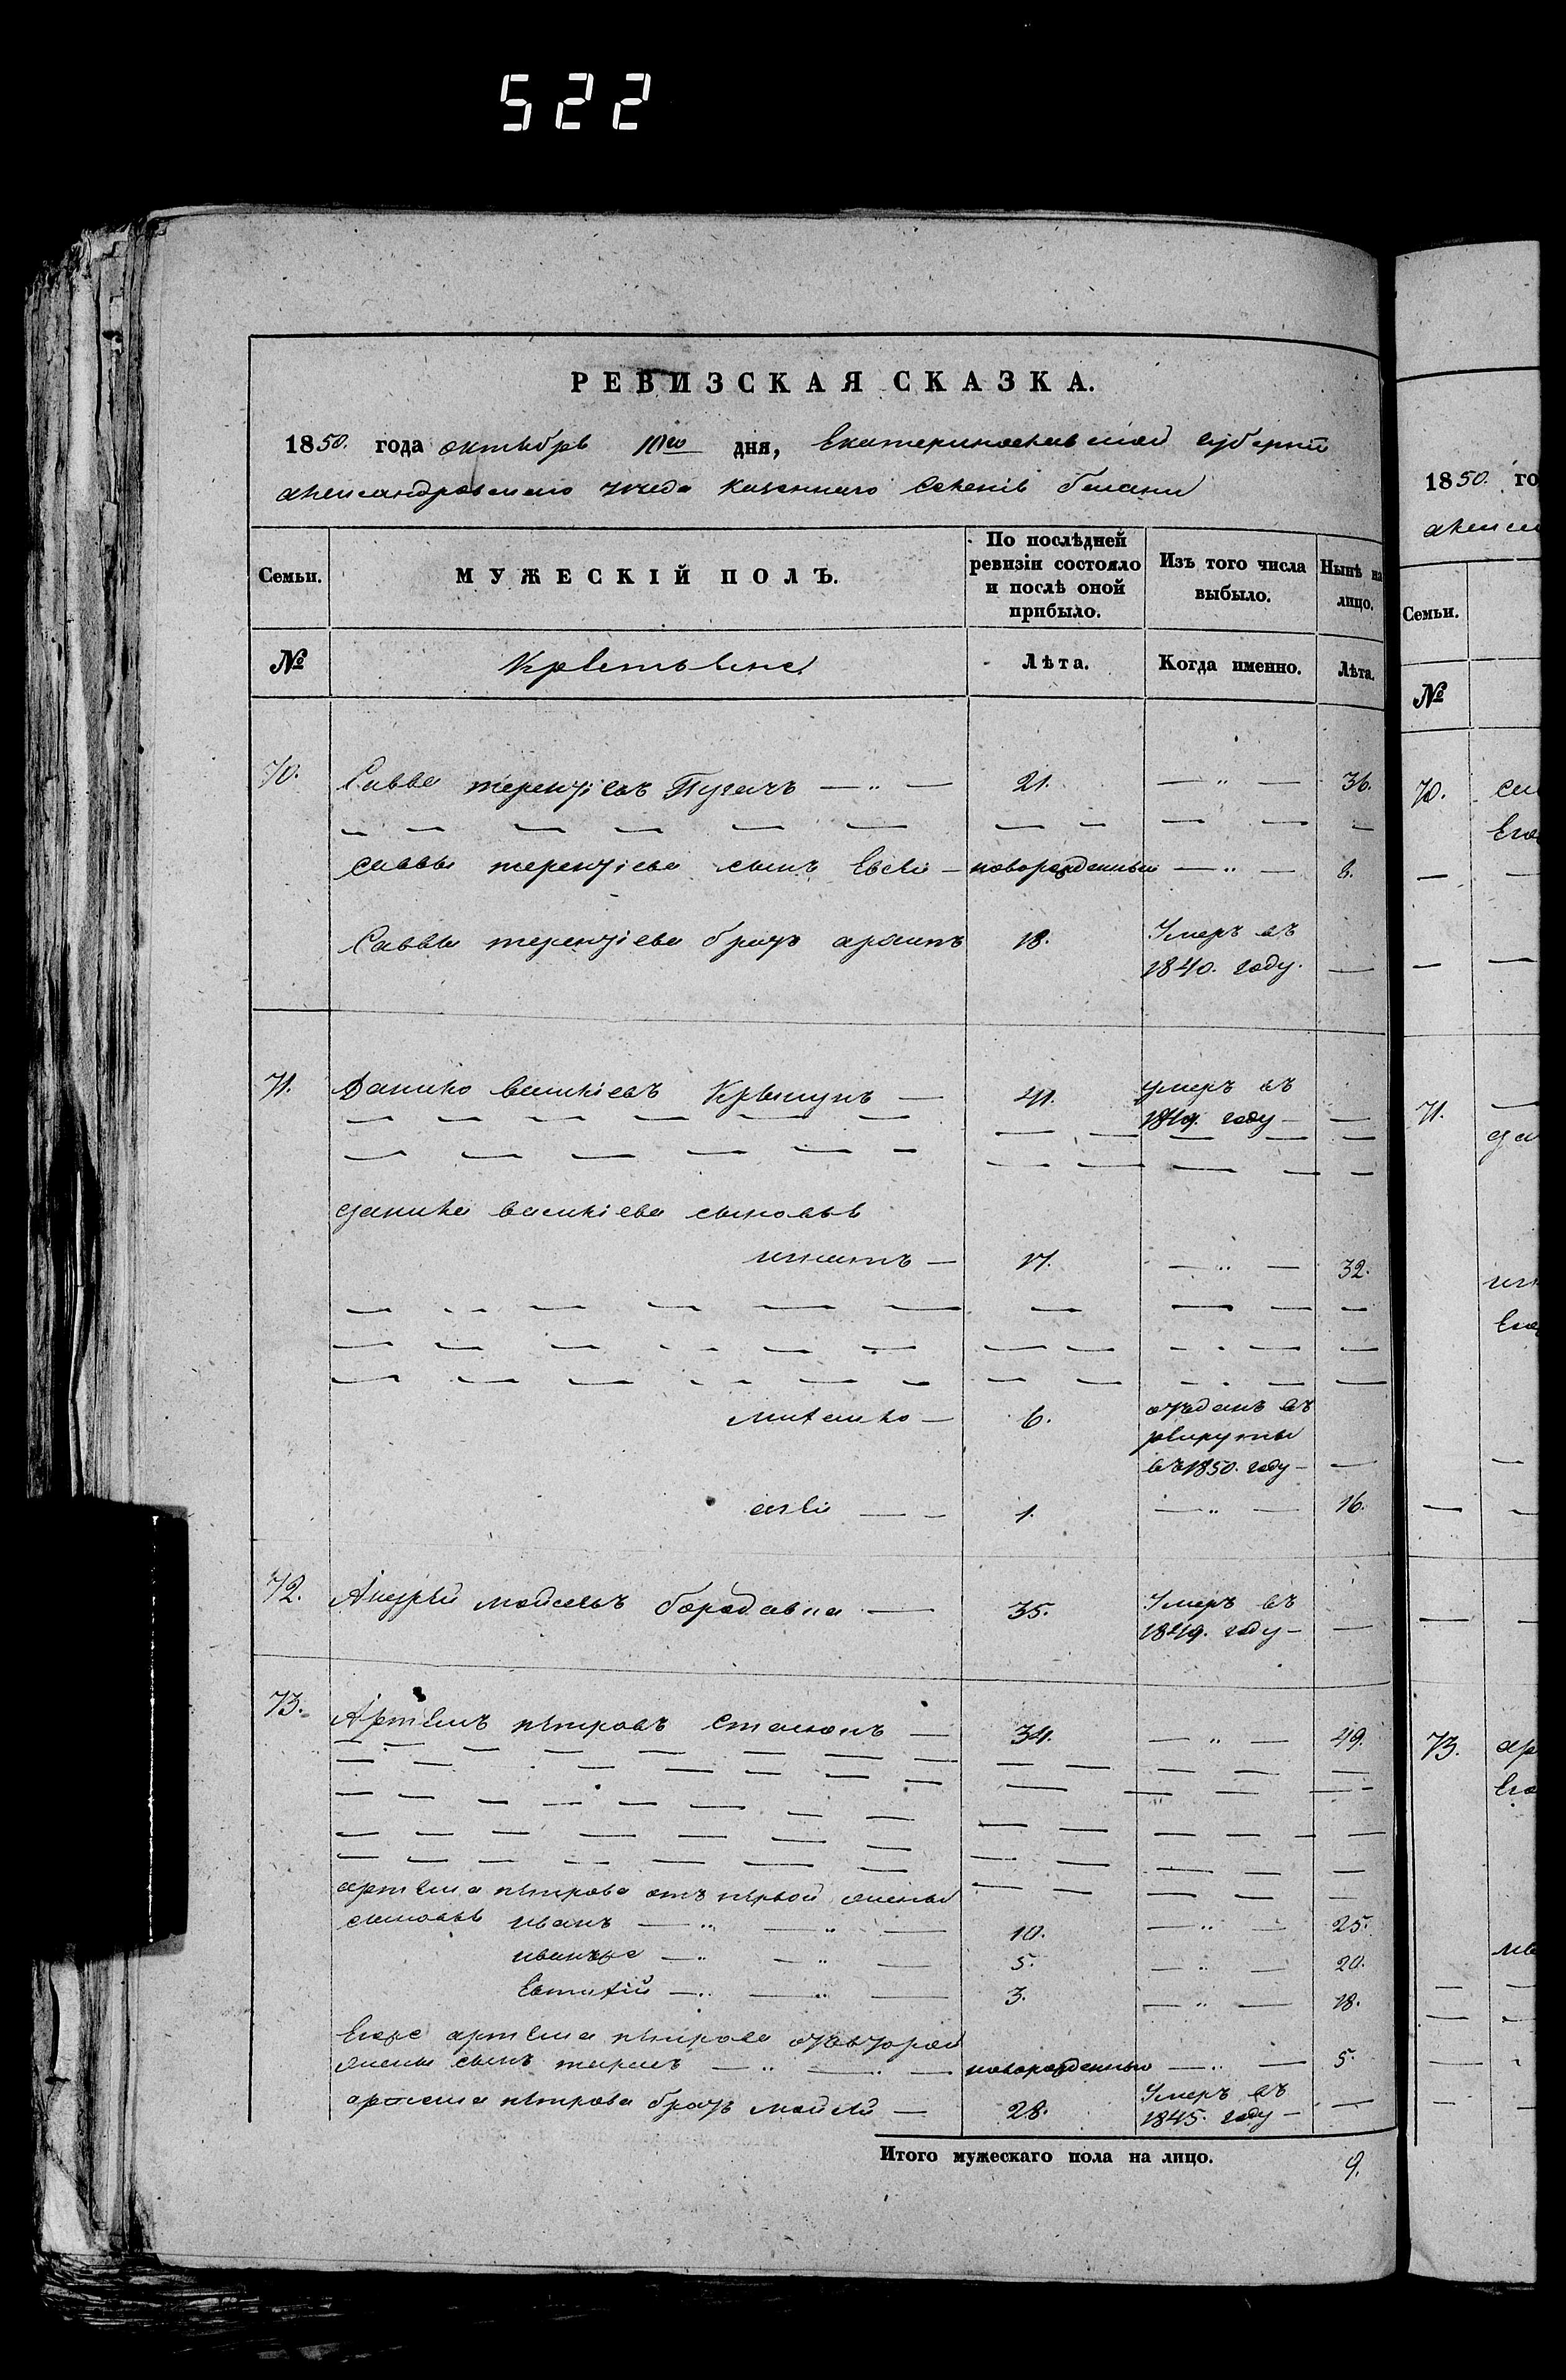 522
РЕВИЗСКАЯ СКАЗКА.
1850. года октября 10го дня, Екатеринославской губерніи
Александровскаго уезда казеннаго Селенія
Семьи. МУЖЕСКІЙ ПОЛЪ. По послѣдней ревизіи состояло и послѣ оной прибыло. Изъ того числа выбыло. Нынѣ на лицо.
№ Крестьяне Лѣта. Когда именно. Лѣта.
70. Савва терентіевъ Пугачъ — „ — 21. — „ — 36.
Саввы терентіева сынъ Евсей — новорожденный — „ — 8.
Саввы терентіева братъ архипъ 18. Умеръ въ
1840. году. —
71. Данило василіевъ Крышунъ — 41. умеръ въ
1849. году — —
данила василіева сыновья
игнатъ — 17. — „ — 32.
михайло — 6. отданъ въ
рекруты
въ 1850. году — —
— — 1. — „ — 16.
72. Андрей мойсеевъ бородавка — 35. Умеръ въ
1849. году — —
73. Артемъ петровъ — 34. — „ — 49.
артема петрова отъ первой жены
сыновья иванъ — „ — „ — 10. — „ — 25.
иванъже — „ — „ — 5. — „ — 20.
Евтихій — „ — „ — 3. — „ — 18.
Егоже артема петрова отвторой
жены сынъ — „ — „ — новорожденный — „ — 5.
артема петрова братъ мойсей — 28. Умеръ въ
1845. году — —
Итого мужескаго пола на лицо. 9.
1850. го
Семьи.
№
70.
71.
73. ар